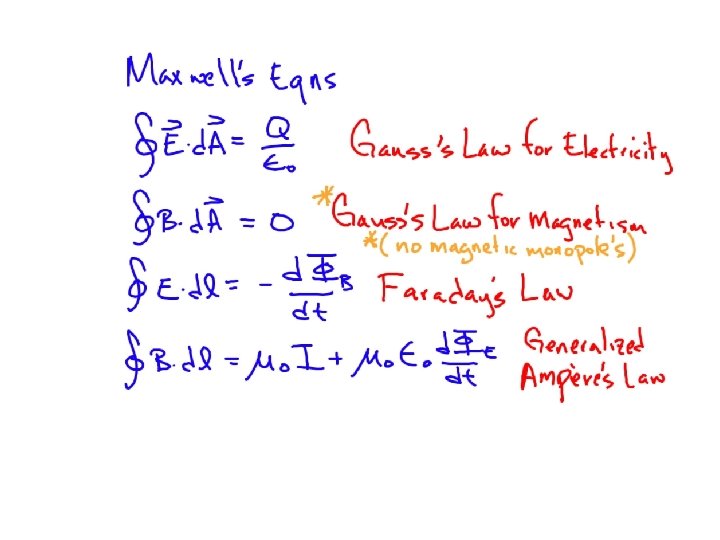 Maxwell's Eqns
∮E⃗·dA⃗ = Q/ε₀ Gauss's Law for Electricity
∮B·dA⃗ = 0 *Gauss's Law for Magnetism
*(no magnetic monopole's)
∮E·dl = - dΦ_B/dt Faraday's Law
∮B·dl = μ₀I + μ₀ε₀ dΦ_E/dt Generalized
Ampère's Law